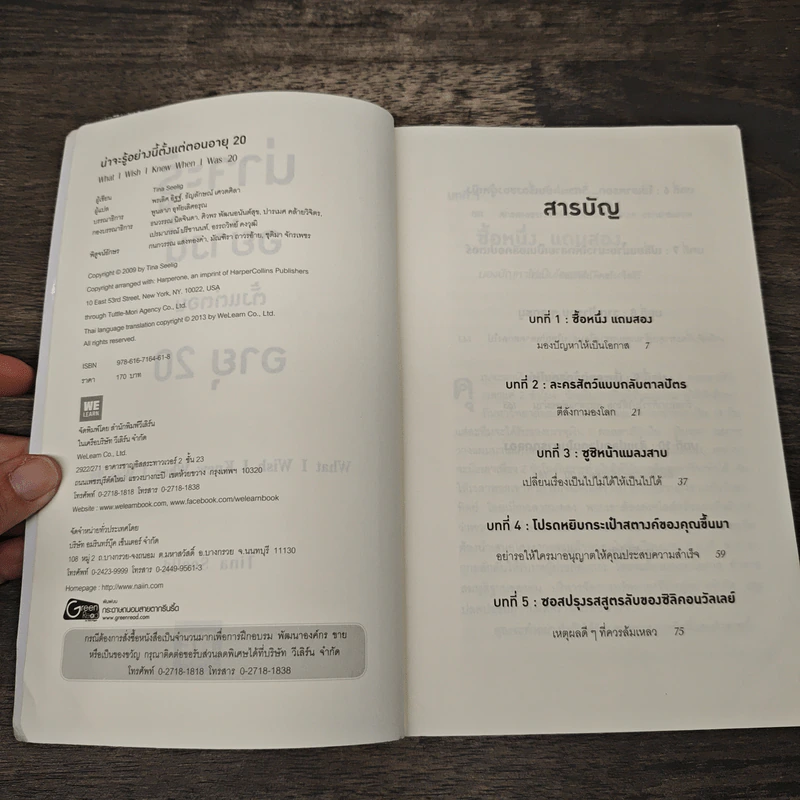 น่าจะรู้อย่างนี้ตั้งแต่ตอนอายุ 20
What I Wish I Knew When I Was 20
ผู้เขียน Tina Seelig
ผู้แปล พรเลิศ อิฐฐ์, ธัญลักษณ์ เศวตศิลา
บรรณาธิการ พูนลาภ อุทัยเลิศอรุณ
กองบรรณาธิการ ธนวรรณ ปิตจินดา, ศิวพร พัฒนอนันต์สุข, ปารเมศ คล้ายวิจิตร,
เปรมาภรณ์ ปรีชานนท์, อรรถวิทย์ คงวุฒิ
พิสูจน์อักษร กนกวรรณ แสงทองคำ, มัณฑิรา ถาวรฮ้าย, ชุติมา จักรเพชร
Copyright © 2009 by Tina Seelig
Copyright arranged with: Harperone, an imprint of HarperCollins Publishers
10 East 53rd Street, New York, NY. 10022. USA
through Tuttle-Mori Agency Co., Ltd.
Thai language translation copyright © 2013 by WeLearn Co., Ltd.
All rights reserved.
ISBN 978-616-7164-61-8
ราคา 170 บาท
WE
LEARN
จัดพิมพ์โดย สำนักพิมพ์วีเลิร์น
ในเครือบริษัท วีเลิร์น จำกัด
WeLearn Co., Ltd.
2922/271 อาคารชาญอิสสระทาวเวอร์ 2 ชั้น 23
ถนนเพชรบุรีตัดใหม่ แขวงบางกะปิ เขตห้วยขวาง กรุงเทพฯ 10320
โทรศัพท์ 0-2718-1818 โทรสาร 0-2718-1838
Website : www.welearnbook.com, www.facebook.com/welearnbook
จัดจำหน่ายทั่วประเทศโดย
บริษัท อมรินทร์บุ๊ค เซ็นเตอร์ จำกัด
108 หมู่ 2 ถ.บางกรวย-จงถนอม ต.มหาสวัสดิ์ อ.บางกรวย จ.นนทบุรี 11130
โทรศัพท์ 0-2423-9999 โทรสาร 0-2449-9561-3
Homepage : http://www.naiin.com
Green
Read
พิมพ์บน
กระดาษถนอมสายตากรีนรี้ด
www.greenread.com
กรณีต้องการสั่งซื้อหนังสือเป็นจำนวนมากเพื่อการฝึกอบรม พัฒนาองค์กร ขาย
หรือเป็นของขวัญ กรุณาติดต่อขอรับส่วนลดพิเศษได้ที่บริษัท วีเลิร์น จำกัด
โทรศัพท์ 0-2718-1818 โทรสาร 0-2718-1838
สารบัญ
บทที่ 1 : ซื้อหนึ่ง แถมสอง
มองปัญหาให้เป็นโอกาส 7
บทที่ 2 : ละครสัตว์แบบกลับตาลปัตร
ตีลังกามองโลก 21
บทที่ 3 : ซูชิหน้าแมลงสาบ
เปลี่ยนเรื่องเป็นไปไม่ได้ให้เป็นไปได้ 37
บทที่ 4 : โปรดหยิบกระเป๋าสตางค์ของคุณขึ้นมา
อย่ารอให้ใครมาอนุญาตให้คุณประสบความสำเร็จ 59
บทที่ 5 : ซอสปรุงรสสูตรลับของซิลิคอนวัลเลย์
เหตุผลดี ๆ ที่ควรล้มเหลว 75